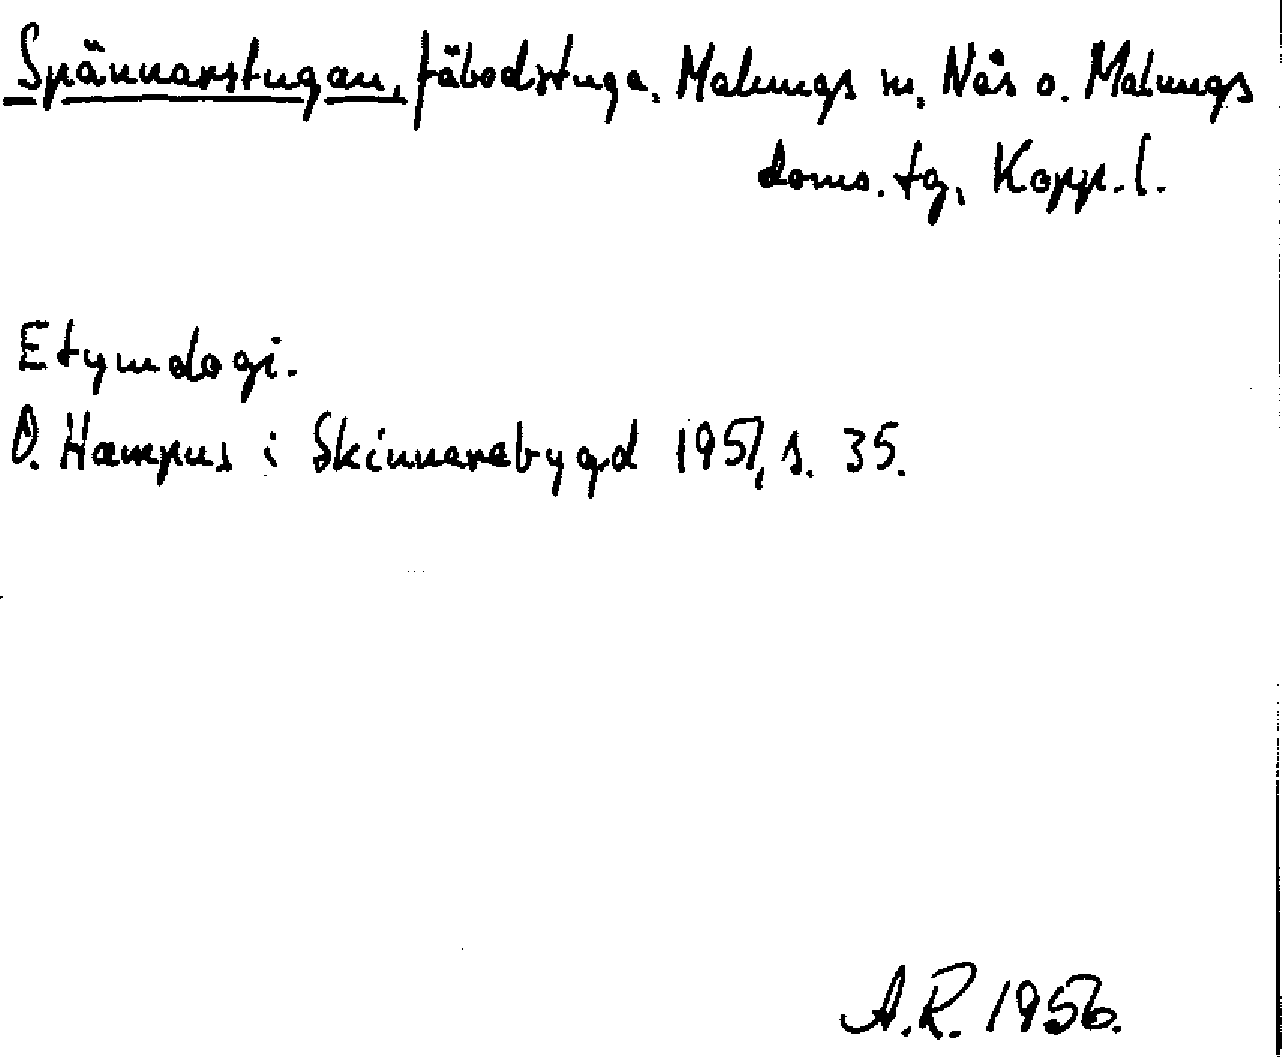 Spännarstugan, fäbodstuga. Malungs sn, Nås o. Malungs
doms. tg, Kopp. l.
Etymologi.
O. Hampus i Skinnarebygd 1951, s. 35.
A.R. 1956.